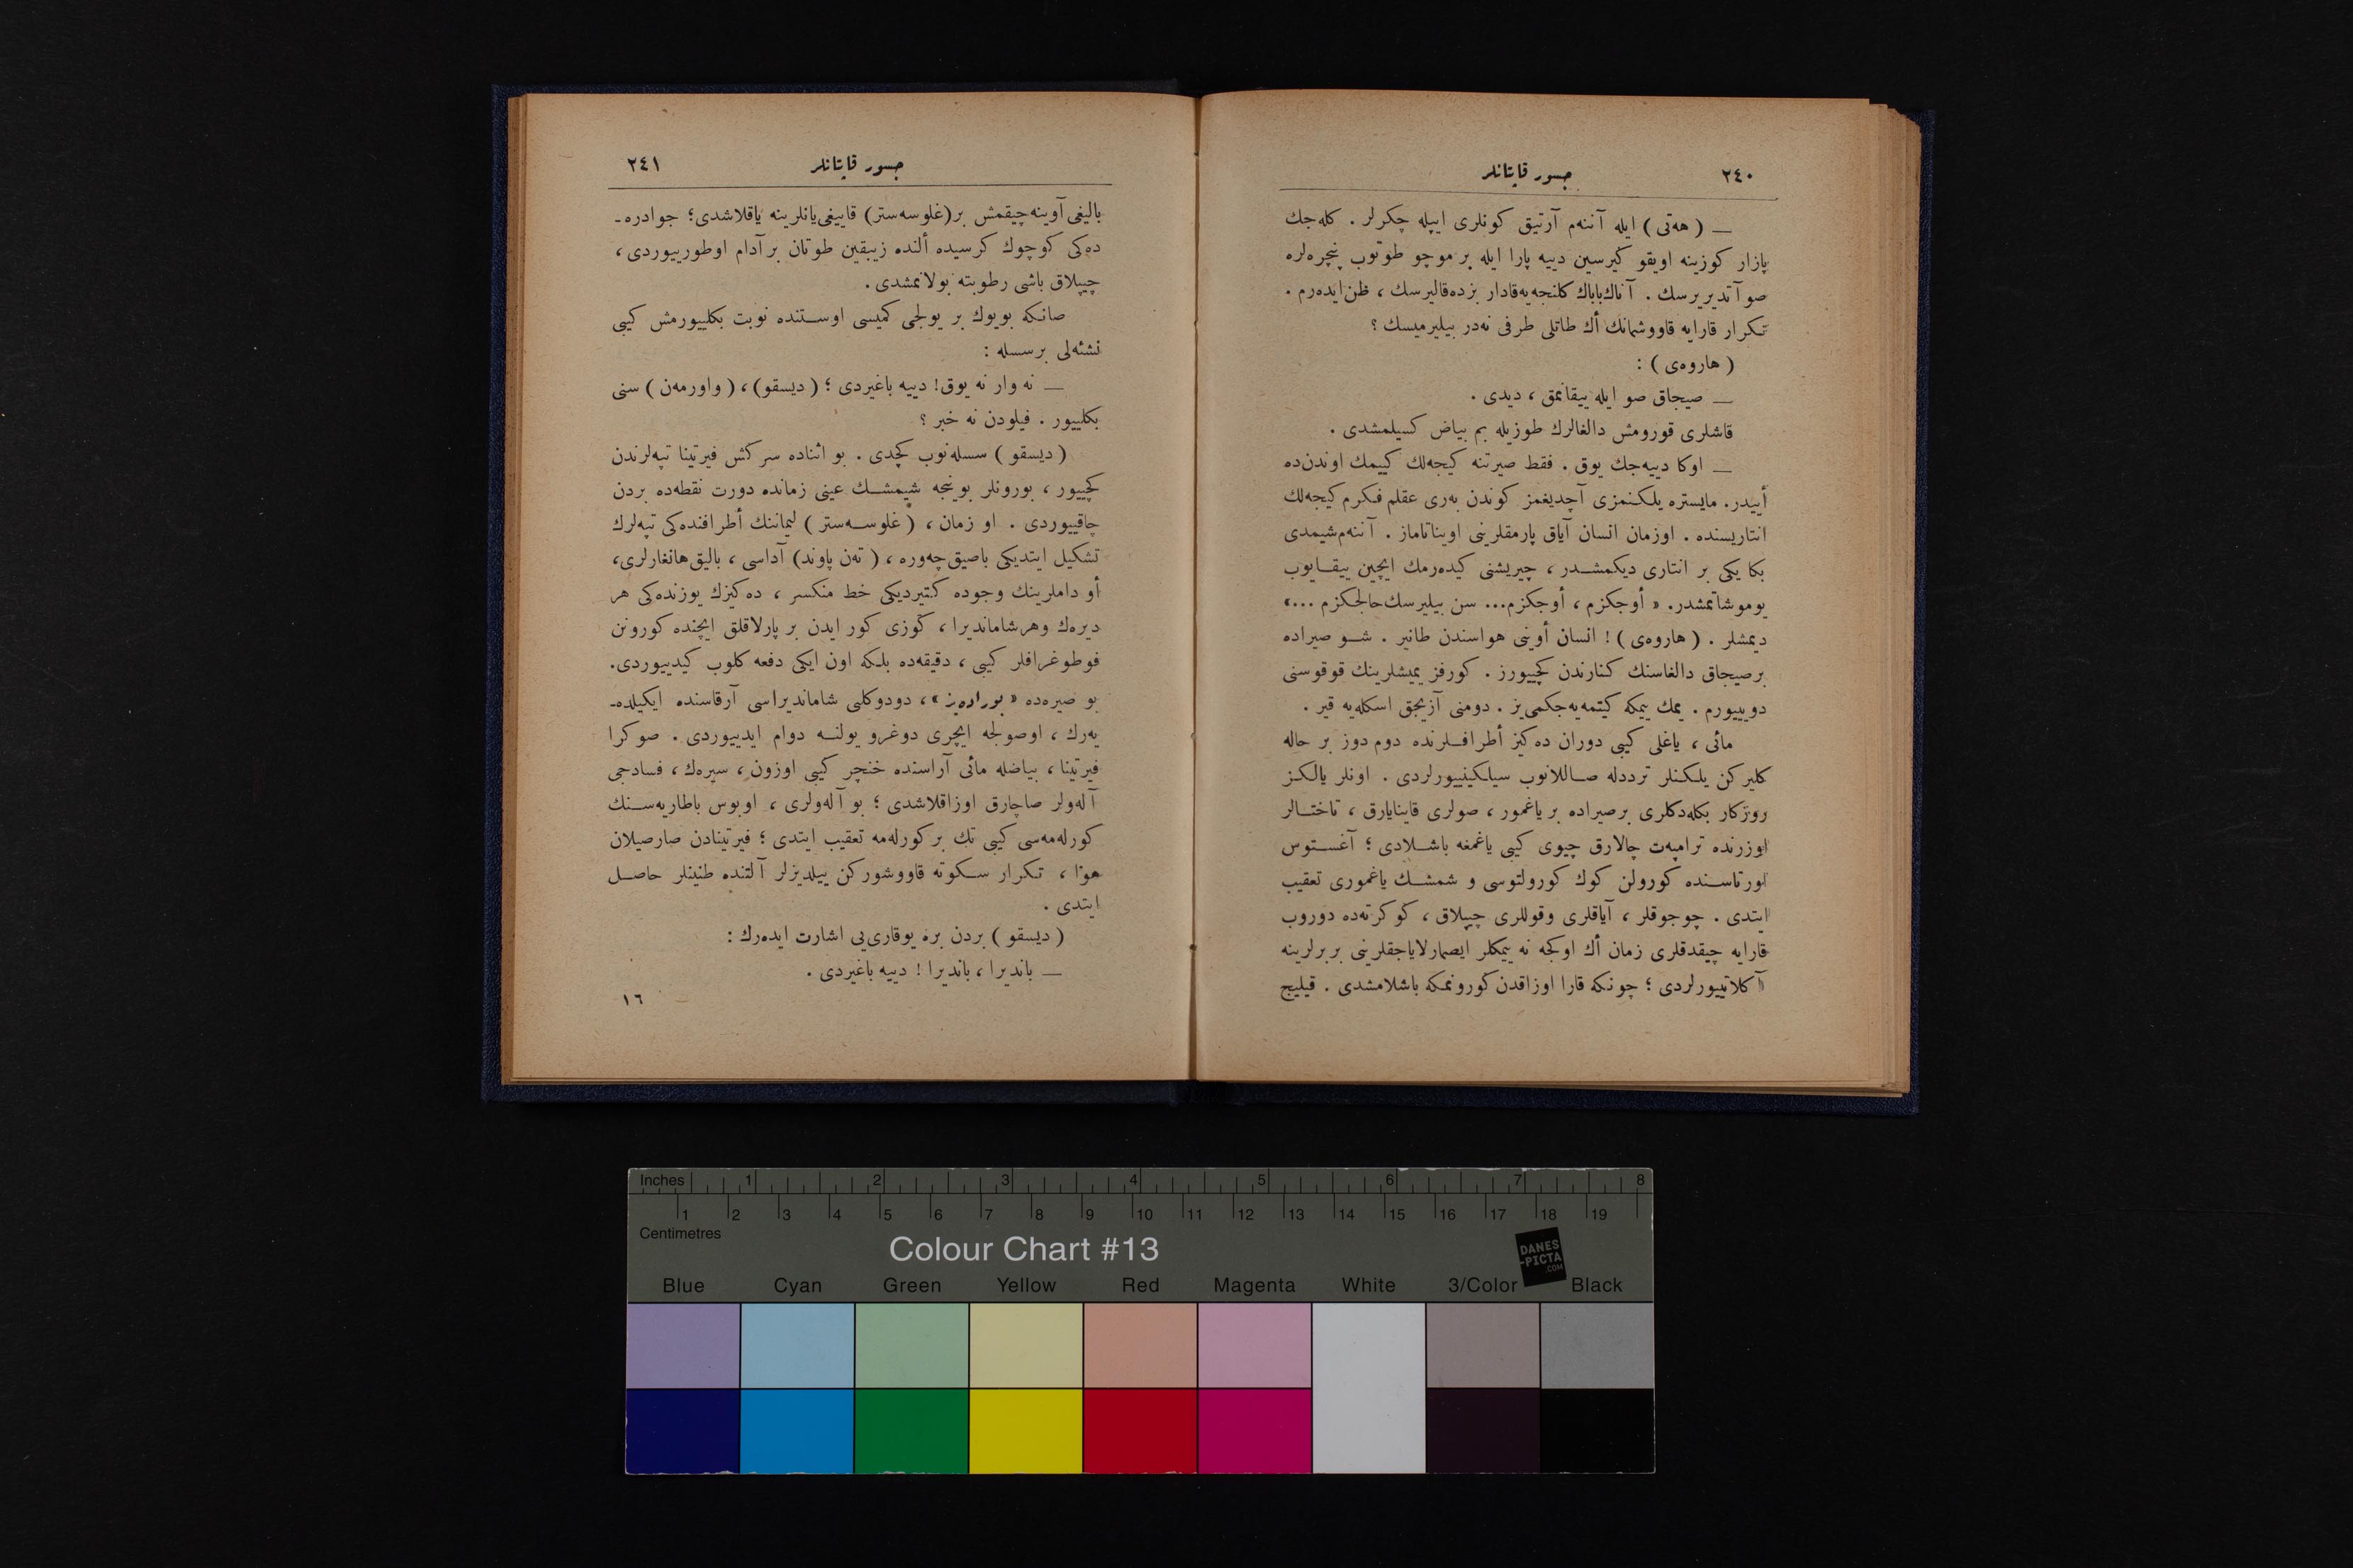 ٢٤٠ جسور قاپتانلر
— ( هه‌تی ) ایله آننه‌م آرتیق كونلری ایپله چكرلر . كله‌جك
پازار كوزینه اویقو كیرسین دییه پارا ایله بر موچو طوتوب پنجره‌لره
صو آتدیریرسك . آناك باباك كلنجه‌یه قادار بزده قالیرسك ، ظن ایده‌رم .
تكرار قارایه قاووشمانك أك طاتلی طرفی نه‌در بیلیرمیسك ؟
( هاروه‌ی ) :
— صیجاق صو ایله ییقانمق ، دیدی .
قاشلری قورومش دالغالرك طوزیله بم بیاض كسیلمشدی .
— اوكا دییه‌جك یوق . فقط صیرتنه كیجه‌لك كییمك اوندن ده
أییدر. مایستره یلكنمزی آچدیغمز كوندن به‌ری عقلم فكرم كیجه‌لك
انتاریسنده . اوزمان انسان آیاق پارمقلرینی اویناتاماز . آننه‌م شیمدی
بكا یكی بر انتاری دیكمشدر ، چیریشنی كیده‌رمك ایچین ییقایوب
یوموشاتمشدر. « أوجكزم ، أوجكزم... سن بیلیرسك حالجكزم ...»
دیمشلر . ( هاروه‌ی ) ! انسان أوینی هواسندن طانیر . شو صیراده
برصیجاق دالغاسنك كنارندن كچییورز . كورفز یمیشلرینك قوقوسنی
دوییورم . یمك ییمكه كیتمه‌یه‌جكمی‌یز . دومنی آزیجق اسكله‌یه قیر .
مائی ، یاغلی كیبی دوران ده‌كیز أطرافلرنده دوم دوز بر حاله
كلیركن یلكنلر ترددله صاللانوب سیلكینییورلردی . اونلر یالكز
روزكار بكله‌دكلری برصیراده بر یاغمور ، صولری قاینایارق ، تاختالر
اوزرنده ترامپه‌ت چالارق چیوی كیبی یاغمغه باشلادی ؛ آغستوس
اورتاسنده كورولن كوك كورولتوسی و شمشك یاغموری تعقیب
ایتدی . چوجوقلر ، آیاقلری وقوللری چیپلاق ، كوكرته‌ده دوروب
قارایه چیقدقلری زمان أك اوكجه نه ییمكلر ایصمارلایاجقلرینی بربرلرینه
آكلاتییورلردی ؛ چونكه قارا اوزاقدن كورونمكه باشلامشدی . قیلیج
جسور قاپتانلر ٢٤١
بالیغی آوینه چیقمش بر (غلوسه‌ستر) قاییغی یانلرینه یاقلاشدی؛ جوادره-
ده‌كی كوچوك كرسیده ألنده زیبقین طوتان بر آدام اوطورییوردی ،
چیپلاق باشی رطوبته بولانمشدی .
صانكه بویوك بر یولجی كمیسی اوستنده نوبت بكلییورمش كیبی
نشئه‌لی برسسله :
— نه وار نه یوق! دییه باغیردی ؛ ( دیسقو) ، ( واورمه‌ن ) سنی
بكلییور . فیلودن نه خبر ؟
( دیسقو ) سسله‌نوب كچدی . بو اثناده سركش فیرتینا تپه‌لرندن
كچییور ، بورونلر بوینجه شیمشك عینی زمانده دورت نقطه‌ده بردن
چاقییوردی . او زمان ، ( غلوسه‌ستر ) لیماننك أطرافنده‌كی تپه‌لرك
تشكیل ایتدیكی باصیق چه‌وره ، ( ته‌ن پاوند) آداسی ، بالیق هانغارلری،
أو داملرینك وجوده كتیردیكی خط منكسر ، ده‌كیزك یوزنده‌كی هر
دیره‌ك وهر شاماندیرا ، كوزی كور ایدن بر پارلاقلق ایچنده كورونن
فوطوغرافلر كیبی ، دقیقه‌ده بلكه اون ایكی دفعه كلوب كیدییوردی.
بو صیره‌ده « بوراده‌یز » ، دودوكلی شاماندیراسی آرقاسنده ایكیلده-
یه‌رك ، اوصولجه ایچری دوغرو یولنه دوام ایدییوردی . صوكرا
فیرتینا ، بیاضله مائی آراسنده خنچر كیبی اوزون ، سیره‌ك ، فسادجی
آله‌ولر صاچارق اوزاقلاشدی ؛ بو آله‌ولری ، اوبوس باطاریه‌سنك
كورله‌مه‌سی كیبی تك بر كورله‌مه تعقیب ایتدی ؛ فیرتینادن صارصیلان
هوا ، تكرار سكوته قاووشوركن ییلدیزلر آلتنده طنینلر حاصل
ایتدی .
( دیسقو ) بردن بره یوقاری‌یی اشارت ایده‌رك :
— باندیرا ، باندیرا ! دییه باغیردی .
١٦
Inches 1 2 3 4 5 6 7 8
1 2 3 4 5 6 7 8 9 10 11 12 13 14 15 16 17 18 19
Centimetres
Colour Chart #13
DANES
-PICTA
.COM
Blue Cyan Green Yellow Red Magenta White 3/Color Black